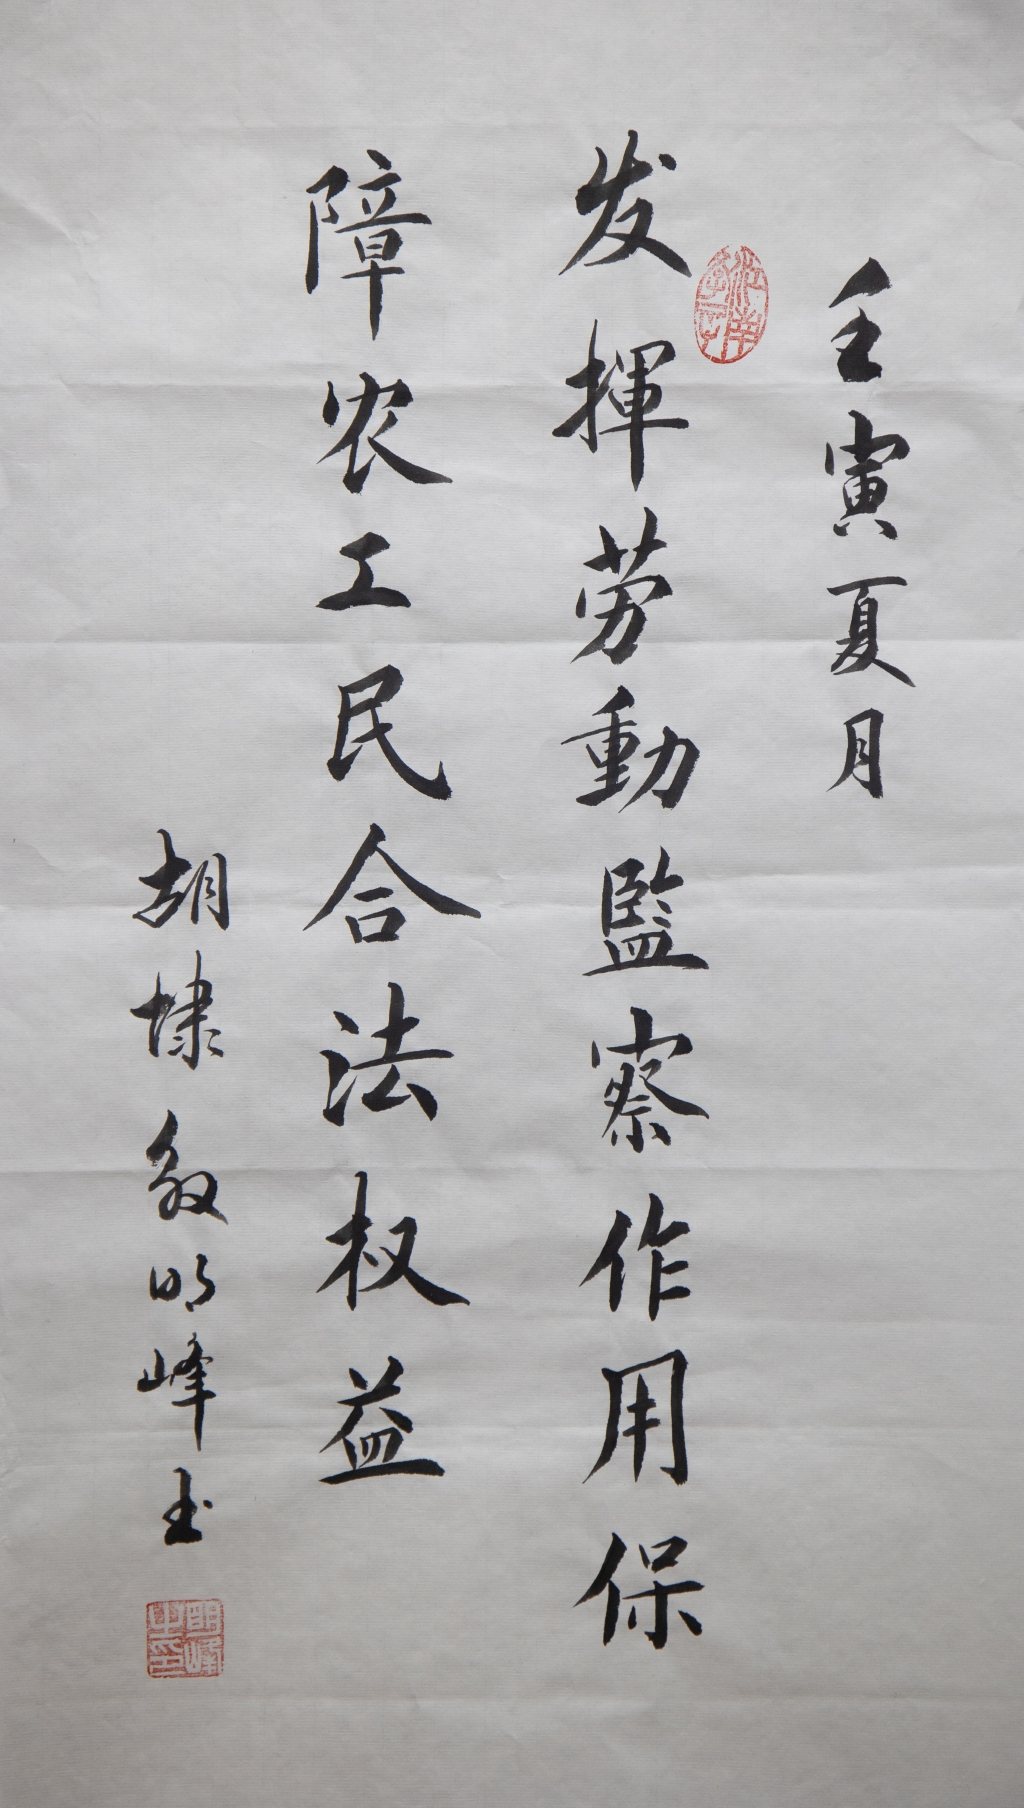 壬寅夏月
发揮劳動監察作用保
障农工民合法权益
胡埭 敍明峰书
明峰之印